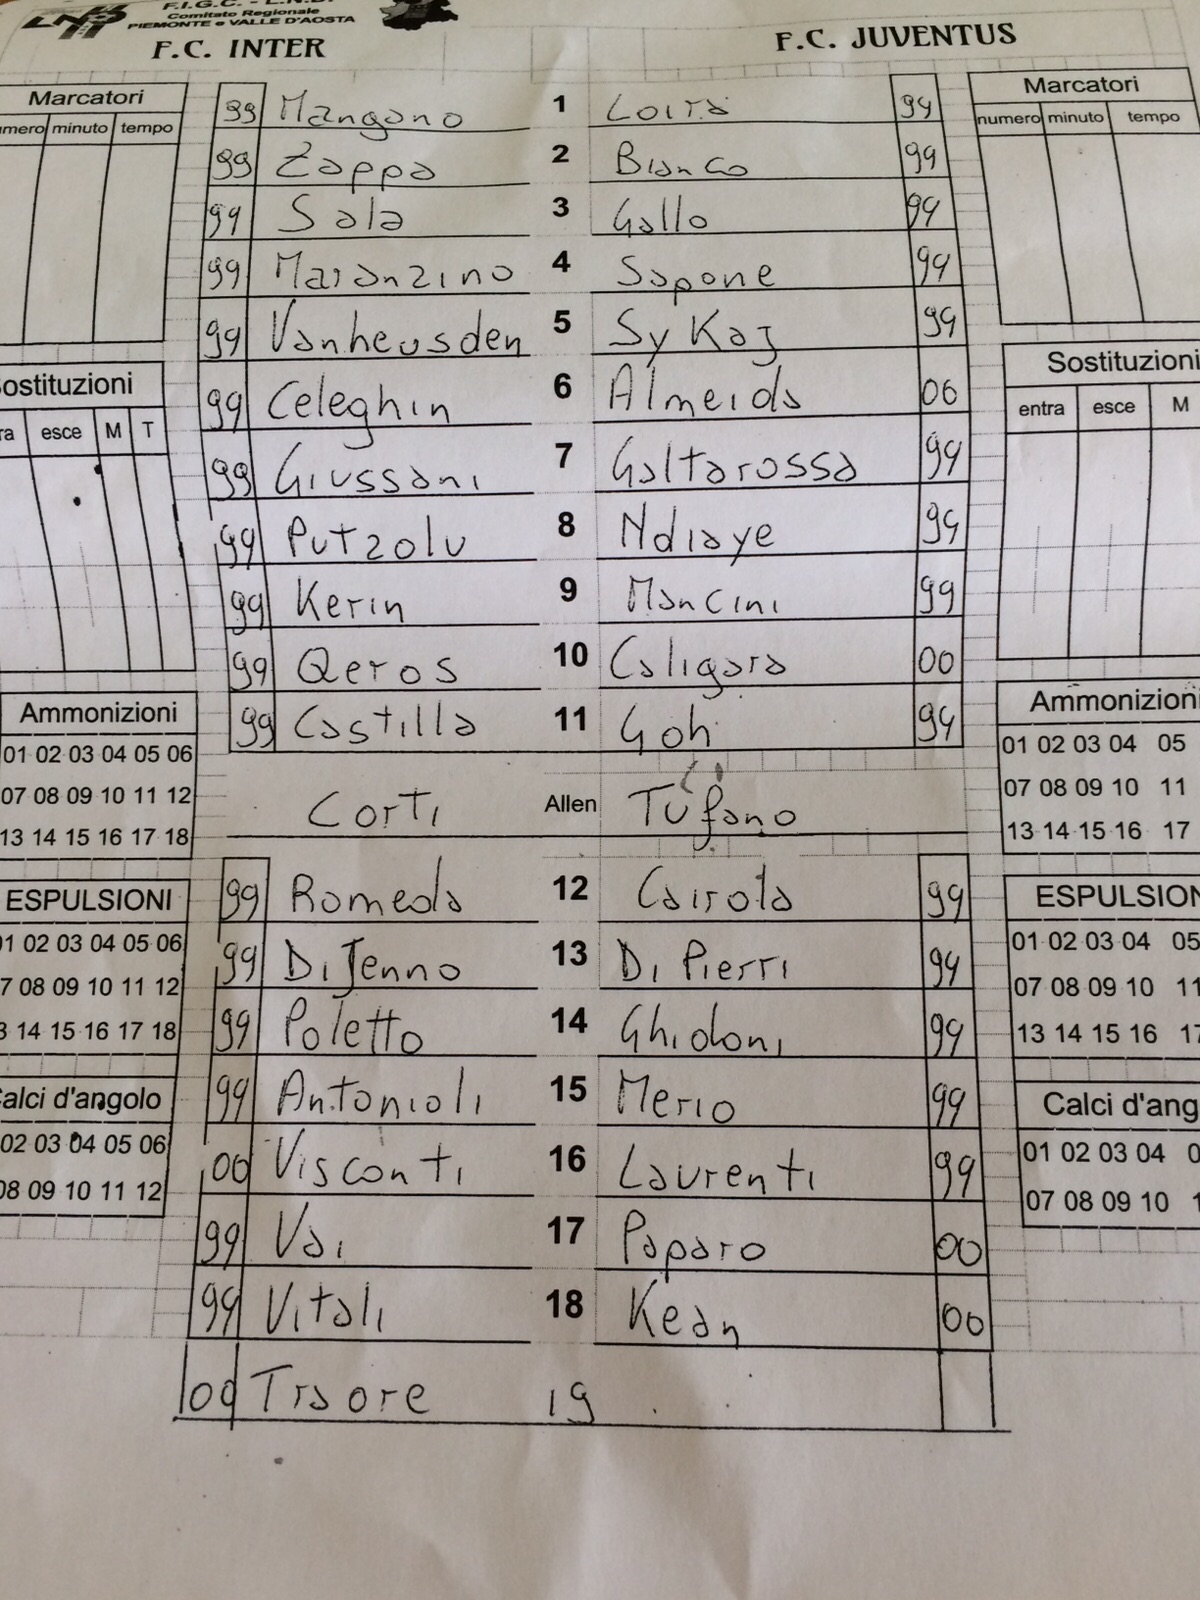 F.I.G.C. - L.N.D.
Comitato Regionale
PIEMONTE e VALLE D'AOSTA
F.C. INTER F.C. JUVENTUS
Marcatori Marcatori
numero minuto tempo numero minuto tempo
99 Mangano 1 Loira 99
99 Zappa 2 Bianco 99
99 Sala 3 Gallo 99
99 Maranzino 4 Sapone 99
99 Vanheusden 5 Sy Kaj 99
Sostituzioni Sostituzioni
99 Celeghin 6 Almeida 00
ra esce M T entra esce M
99 Giussani 7 Galtarossa 99
99 Putzolu 8 Ndiaye 99
99 Kerin 9 Mancini 99
99 Qeros 10 Caligara 00
99 Castilla 11 Goh 99
Ammonizioni Ammonizioni
01 02 03 04 05 06 01 02 03 04 05
07 08 09 10 11 12 07 08 09 10 11
13 14 15 16 17 18 13 14 15 16 17
Corti Allen Tufano
99 Romeda 12 Cairola 99
99 Di Jenno 13 Di Pierri 99
99 Poletto 14 Ghidoni 99
99 Antonioli 15 Merio 99
00 Visconti 16 Laurenti 99
99 Vai 17 Paparo 00
99 Vitali 18 Kean 00
00 Traore 19
ESPULSIONI ESPULSION
01 02 03 04 05 06 01 02 03 04 05
7 08 09 10 11 12 07 08 09 10 11
3 14 15 16 17 18 13 14 15 16 17
Calci d'angolo Calci d'ang
02 03 04 05 06 01 02 03 04 0
08 09 10 11 12 07 08 09 10 1